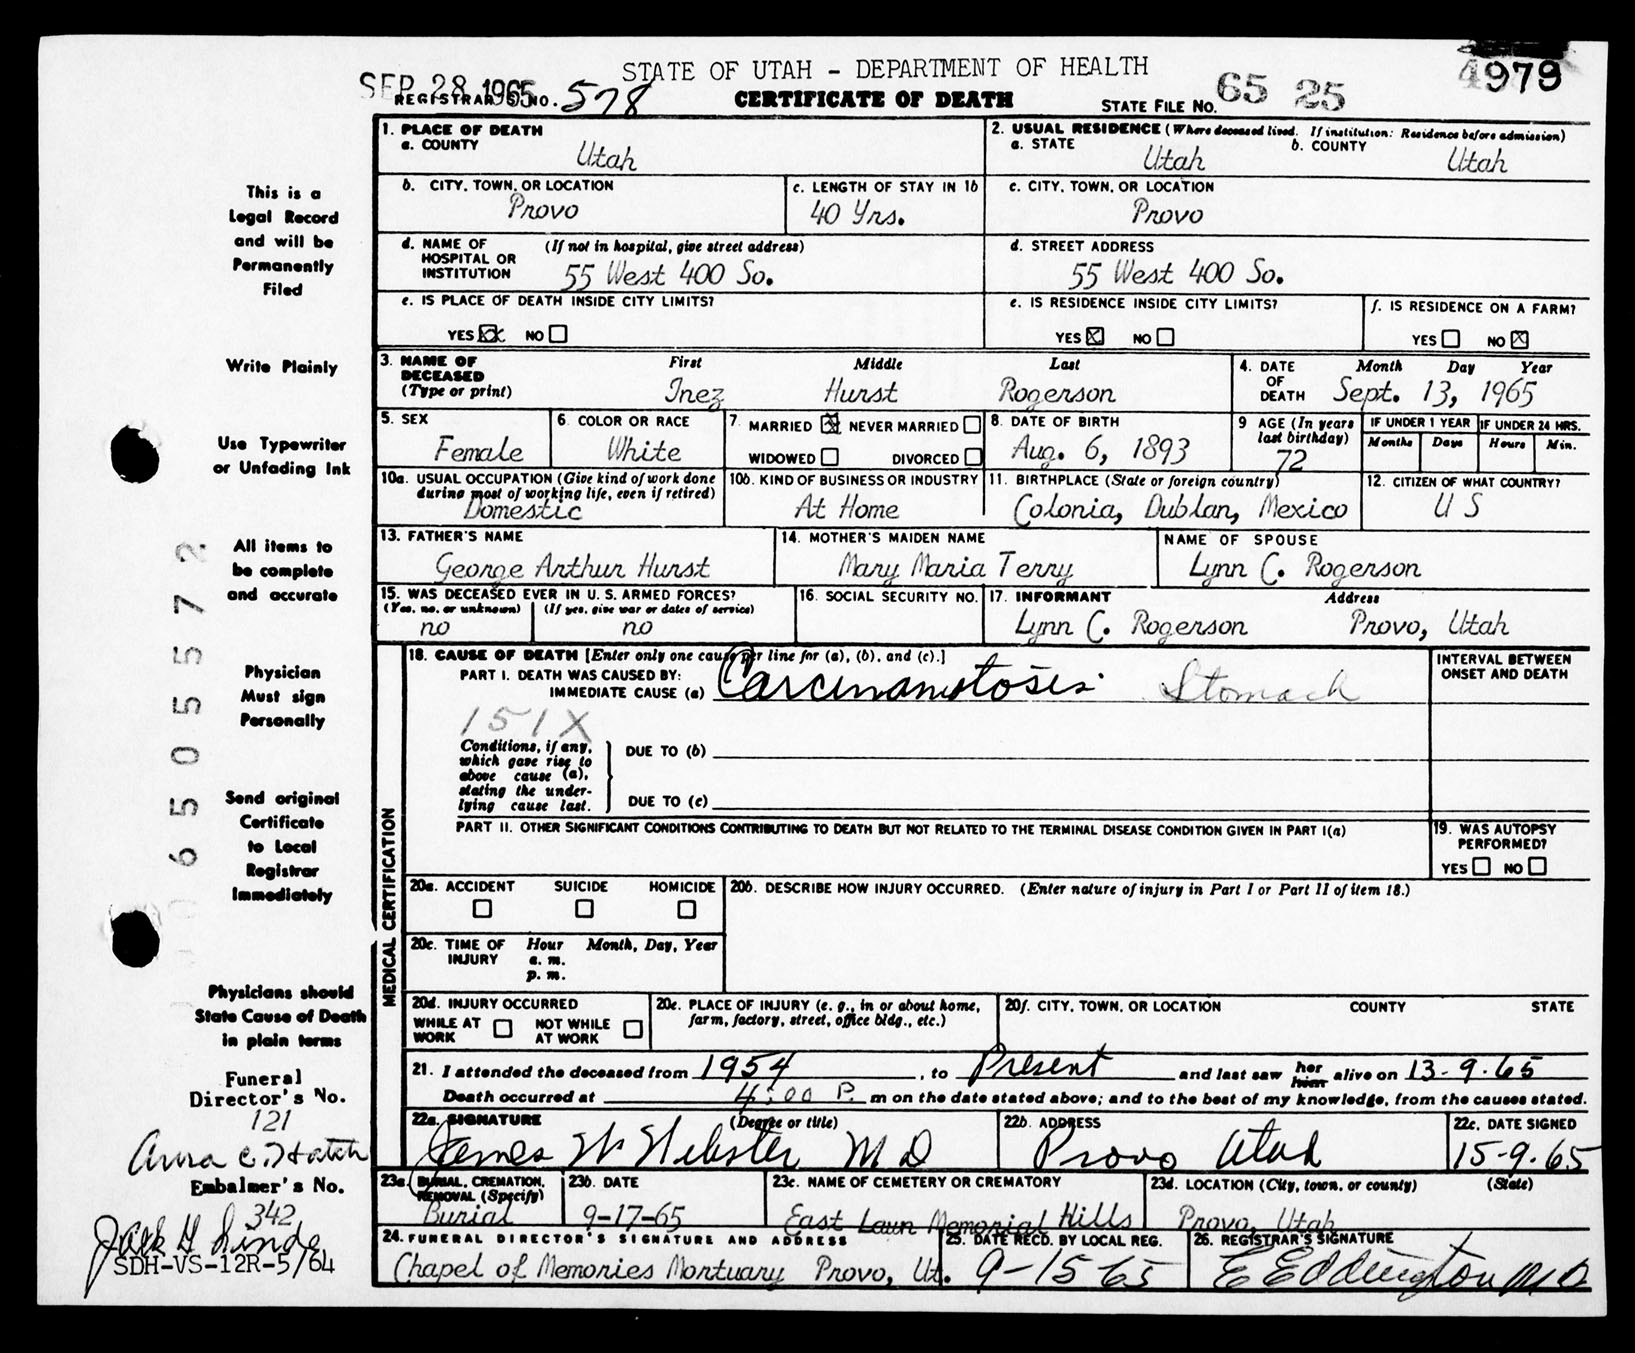 STATE OF UTAH - DEPARTMENT OF HEALTH
SEP 28 1965
REGISTRAR'S NO. 578
CERTIFICATE OF DEATH
STATE FILE NO. 65 25 4979
This is a
Legal Record
and will be
Permanently
Filed
Write Plainly
Use Typewriter
or Unfading Ink
All items to
be complete
and accurate
Physician
Must sign
Personally
Send original
Certificate
to Local
Registrar
Immediately
Physicians should
State Cause of Death
in plain terms
Funeral
Director's No.
121
Embalmer's No.
342
SDH-VS-12R-5/64
6 5 0 5 5 7 2
1. PLACE OF DEATH
a. COUNTY
Utah
2. USUAL RESIDENCE (Where deceased lived. If institution: Residence before admission)
a. STATE Utah b. COUNTY Utah
b. CITY, TOWN, OR LOCATION
Provo
c. LENGTH OF STAY IN 1b
40 Yrs.
c. CITY, TOWN, OR LOCATION
Provo
d. NAME OF (If not in hospital, give street address)
HOSPITAL OR
INSTITUTION 55 West 400 So.
d. STREET ADDRESS
55 West 400 So.
e. IS PLACE OF DEATH INSIDE CITY LIMITS?
YES XX NO
e. IS RESIDENCE INSIDE CITY LIMITS?
YES X NO
f. IS RESIDENCE ON A FARM?
YES NO X
3. NAME OF First Middle Last
DECEASED
(Type or print) Inez Hurst Rogerson
4. DATE Month Day Year
OF
DEATH Sept. 13, 1965
5. SEX
Female
6. COLOR OR RACE
White
7. MARRIED X NEVER MARRIED
WIDOWED DIVORCED
8. DATE OF BIRTH
Aug. 6, 1893
9 AGE (In years
last birthday)
72
IF UNDER 1 YEAR
Months Days
IF UNDER 24 HRS.
Hours Min.
10a. USUAL OCCUPATION (Give kind of work done
during most of working life, even if retired)
Domestic
10b. KIND OF BUSINESS OR INDUSTRY
At Home
11. BIRTHPLACE (State or foreign country)
Colonia, Dublan, Mexico
12. CITIZEN OF WHAT COUNTRY?
U S
13. FATHER'S NAME
George Arthur Hurst
14. MOTHER'S MAIDEN NAME
Mary Maria Terry
NAME OF SPOUSE
Lynn C. Rogerson
15. WAS DECEASED EVER IN U.S. ARMED FORCES?
(Yes, no, or unknown) (If yes, give war or dates of service)
no no
16. SOCIAL SECURITY NO.
17. INFORMANT Address
Lynn C. Rogerson Provo, Utah
MEDICAL CERTIFICATION
18. CAUSE OF DEATH [Enter only one cause per line for (a), (b), and (c).]
PART I. DEATH WAS CAUSED BY:
IMMEDIATE CAUSE (a) Carcinamotosis Stomach
151X
Conditions, if any,
which gave rise to
above cause (a),
stating the under-
lying cause last.
DUE TO (b)
DUE TO (c)
INTERVAL BETWEEN
ONSET AND DEATH
PART II. OTHER SIGNIFICANT CONDITIONS CONTRIBUTING TO DEATH BUT NOT RELATED TO THE TERMINAL DISEASE CONDITION GIVEN IN PART I(a)
19. WAS AUTOPSY
PERFORMED?
YES NO
20a. ACCIDENT SUICIDE HOMICIDE
20b. DESCRIBE HOW INJURY OCCURRED. (Enter nature of injury in Part I or Part II of item 18.)
20c. TIME OF Hour Month, Day, Year
INJURY a. m.
p. m.
20d. INJURY OCCURRED
WHILE AT NOT WHILE
WORK AT WORK
20e. PLACE OF INJURY (e. g., in or about home,
farm, factory, street, office bldg., etc.)
20f. CITY, TOWN, OR LOCATION COUNTY STATE
21. I attended the deceased from 1954, to Present and last saw her him alive on 13-9-65
Death occurred at 4:00 P. m on the date stated above; and to the best of my knowledge, from the causes stated.
22a. SIGNATURE (Degree or title)
James W Webster M D
22b. ADDRESS
Provo Utah
22c. DATE SIGNED
15-9-65
23a. BURIAL, CREMATION,
REMOVAL (Specify)
Burial
23b. DATE
9-17-65
23c. NAME OF CEMETERY OR CREMATORY
East Lawn Memorial Hills
23d. LOCATION (City, town, or county) (State)
Provo, Utah
24. FUNERAL DIRECTOR'S SIGNATURE AND ADDRESS
Chapel of Memories Mortuary Provo, Ut.
25. DATE RECD. BY LOCAL REG.
9-15-65
26. REGISTRAR'S SIGNATURE
E Eddington M D